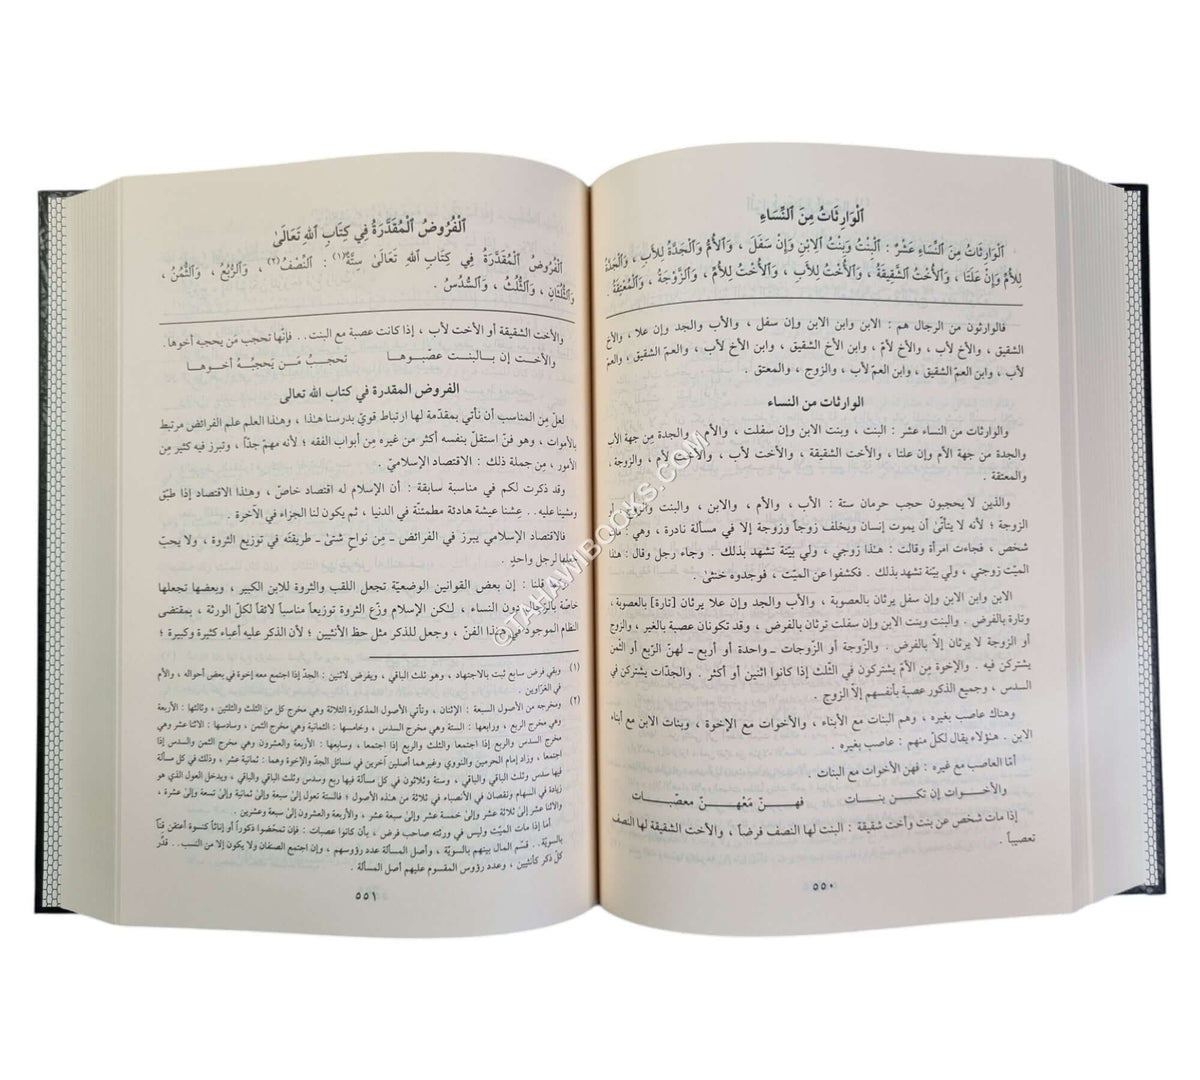 ٱلْوَارِثَاتُ مِنَ ٱلنِّسَاءِ
ٱلْوَارِثَاتُ مِنَ ٱلنِّسَاءِ عَشْرٌ : ٱلْبِنْتُ وَبِنْتُ ٱلِابْنِ وَإِنْ سَفَلَ ، وَٱلْأُمُّ وَٱلْجَدَّةُ لِلأَبِ ، وَٱلْجَدَّةُ
لِلأُمِّ وَإِنْ عَلَتَا ، وَٱلأُخْتُ ٱلشَّقِيقَةُ ، وَٱلأُخْتُ لِلأَبِ ، وَٱلأُخْتُ لِلأُمِّ ، وَٱلزَّوْجَةُ ، وَٱلْمُعْتِقَةُ .
فالوارثون من الرجال هم : الابن وابن الابن وإن سفل ، والأب والجد وإن علا ، والأخ
الشقيق ، والأخ لأب ، والأخ لأمّ ، وابن الأخ الشقيق ، وابن الأخ لأب ، والعمّ الشقيق ، والعمّ
لأب ، وابن العمّ الشقيق ، وابن العمّ لأب ، والزوج ، والمعتق .
الوارثات من النساء
والوارثات من النساء عشر : البنت ، وبنت الابن وإن سفلت ، والأم ، والجدة مِن جهة الأب
والجدة من جهة الأم وإن علتا ، والأخت الشقيقة ، والأخت لأب ، والأخت لأم ، والزوجة ،
والمعتقة .
والذين لا يحجبون حجب حرمان ستة : الأب ، والأم ، والابن ، والبنت والزوج ، أو
الزوجة ؛ لأنه لا يتأتّىٰ أن يموت إنسان ويخلف زوجاً وزوجة إلا في مسألة نادرة ، وهي : مات
شخص ، فجاءت امرأة وقالت : هـٰذا زوجي ، ولي بيّنة تشهد بذلك . وجاء رجل وقال : هـٰذا
الميّت زوجتي ، ولي بيّنة تشهد بذلك . فكشفوا عن الميّت ، فوجدوه خنثىٰ .
الابن وابن الابن وإن سفل يرثان بالعصوبة ، والأب والجد وإن علا يرثان [تارة] بالعصوبة ،
وتارة بالفرض . والبنت وبنت الابن وإن سفلت ترثان بالفرض ، وقد تكونان عصبة بالغير ، والزوج
أو الزوجة لا يرثان إلاّ بالفرض . والزوجة أو الزّوجات ـ واحدة أو أربع ـ لهنّ الرّبع أو الثّمن
يشتركن فيه . والإخوة مِن الأمّ يشتركون في الثّلث إذا كانوا اثنين أو أكثر . والجدّات يشتركن في
السدس ، وجميع الذكور عصبة بأنفسهم إلاّ الزوج .
وهناك عاصب بغيره ، وهم البنات مع الأبناء ، والأخوات مع الإخوة ، وبنات الابن مع أبناء
الابن . هـٰؤلاء يقال لكلّ منهم : عاصب بغيره .
أمّا العاصب مع غيره : فهن الأخوات مع البنات .
والأخـوات إن تكـن بنـات فهـنّ مَعْهـنّ معصّبـات
إذا مات شخص عن بنت وأخت شقيقة : البنت لها النصف فرضاً ، والأخت الشقيقة لها النصف
تعصيباً .
٥٥٠
ٱلْفُرُوضُ ٱلْمُقَدَّرَةُ فِي كِتَابِ ٱللهِ تَعَالَىٰ
ٱلْفُرُوضُ ٱلْمُقَدَّرَةُ فِي كِتَابِ ٱللهِ تَعَالَىٰ سِتَّةٌ(١) : ٱلنِّصْفُ(٢) ، وَٱلرُّبُعُ ، وَٱلثُّمُنُ ،
وَٱلثُّلُثَانِ ، وَٱلثُّلُثُ ، وَٱلسُّدُسُ .
والأخت الشقيقة أو الأخت لأب ، إذا كانت عصبة مع البنت . . فإنّها تحجب مَن يحجبه أخوها.
والأخت إن بـالبنـت عصّبوهـا تحجـب مَـن يَحجبُـهُ أخـوهـا
الفروض المقدرة في كتاب الله تعالى
لعلّ مِن المناسب أن نأتي بمقدّمة لها ارتباط قويّ بدرسنا هـٰذا ، وهـٰذا العلم علم الفرائض مرتبط
بالأموات ، وهو فنّ استقلّ بنفسه أكثر من غيره مِن أبواب الفقه ؛ لأنه مهمّ جدّاً ، وتبرز فيه كثير مِن
الأمور ، مِن جملة ذلك : الاقتصاد الإسلاميّ .
وقد ذكرت لكم في مناسبة سابقة : أن الإسلام له اقتصاد خاصّ ، وهـٰذا الاقتصاد إذا طبّق
ومشينا عليه . . عشنا عيشة هادئة مطمئنّة في الدنيا ، ثم يكون لنا الجزاء في الآخرة .
فالاقتصاد الإسلامي يبرز في الفرائض ـ مِن نواحٍ شتىٰ ـ طريقته في توزيع الثروة ، ولا يحبّ
جعلها لرجل واحدٍ .
قلنا : إن بعض القوانين الوضعيّة تجعل اللقب والثروة للابن الكبير ، وبعضها تجعلها
خاصّة بالرّجال دون النساء ، لـٰكن الإسلام وزّع الثروة توزيعاً مناسباً لائقاً لكلّ الورثة ، بمقتضى
النظام الموجود في هـٰذا الفنّ ، وجعل للذكر مثل حظ الأنثيين ؛ لأن الذكر عليه أعباء كثيرة وكبيرة ؛
(١) وبقي فرض سابع ثبت بالاجتهاد ، وهو ثلث الباقي ، ويفرض لاثنين : الجدّ إذا اجتمع معه إخوة في بعض أحواله ، والأم
في الغرّاوين .
(٢) ومخرجه من الأصول السبعة : الإثنان ، وتأتي الأصول المذكورة الثلاثة وهي مخرج كل من الثلث والثلثين ، وثالثها : الأربعة
وهي مخرج الربع ، ورابعها : الستة وهي مخرج السدس ، وخامسها : الثمانية وهي مخرج الثمن ، وسادسها : الاثنا عشر وهي
مخرج السدس والربع إذا اجتمعا والثلث والربع إذا اجتمعا ، وسابعها : الأربعة والعشرون وهي مخرج الثمن والسدس إذا
اجتمعا ، وزاد إمام الحرمين والنووي وغيرهما أصلين آخرين في مسائل الجدّ والإخوة وهما : ثمانية عشر ، وذلك في كل مسألة
فيها سدس وثلث الباقي والباقي ، وستة وثلاثون في كل مسألة فيها ربع وسدس وثلث الباقي والباقي ، ويدخل العول الذي هو
زيادة في السهام ونقصان في الأنصباء في ثلاثة من هذه الأصول ؛ فالستة تعول إلىٰ سبعة وإلىٰ ثمانية وإلىٰ تسعة وإلىٰ عشرة ،
والاثنا عشر إلىٰ ثلاثة عشر وإلىٰ خمسة عشر وإلىٰ سبعة عشر ، والأربعة والعشرون إلىٰ سبعة وعشرين .
أما إذا مات الميّت وليس في ورثته صاحب فرض ، بأن كانوا عصبات : فإن تمحّضوا ذكوراً أو إناثاً كنسوة أعتقن قنّاً
بالسويّة. . قسّم المال بينهم بالسويّة ، وأصل المسألة عدد رؤوسهم ، وإن اجتمع الصنفان ولا يكون إلا من النسب . . قدّر
كلّ ذكر كأنثيين ، وعدد رؤوس المقسوم عليهم أصل المسألة .
٥٥١
©TAHAWIBOOKS.COM